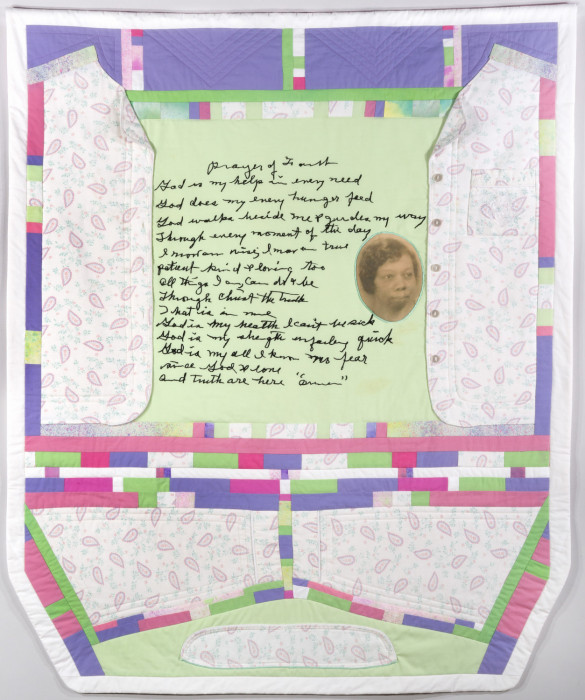 Prayer of Faith
God is my help in every need
God does my every hunger feed
God walks beside me & guides my way
Through every moment of the day
I now am wise, I now am true
patient kind & loving too
All things I am, Can do & be
Through Christ the truth
That is in me
God is my health I can't be sick
God is my strength unfailing quick
God is my all I know no fear
since God & love
and truth are here "Amen"